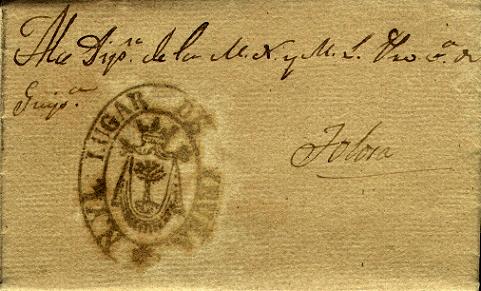 A la Dip.ⁿ de la M. N. y M. L. Prov.ª de
Guip.ª
Tolosa
LUGAR DE